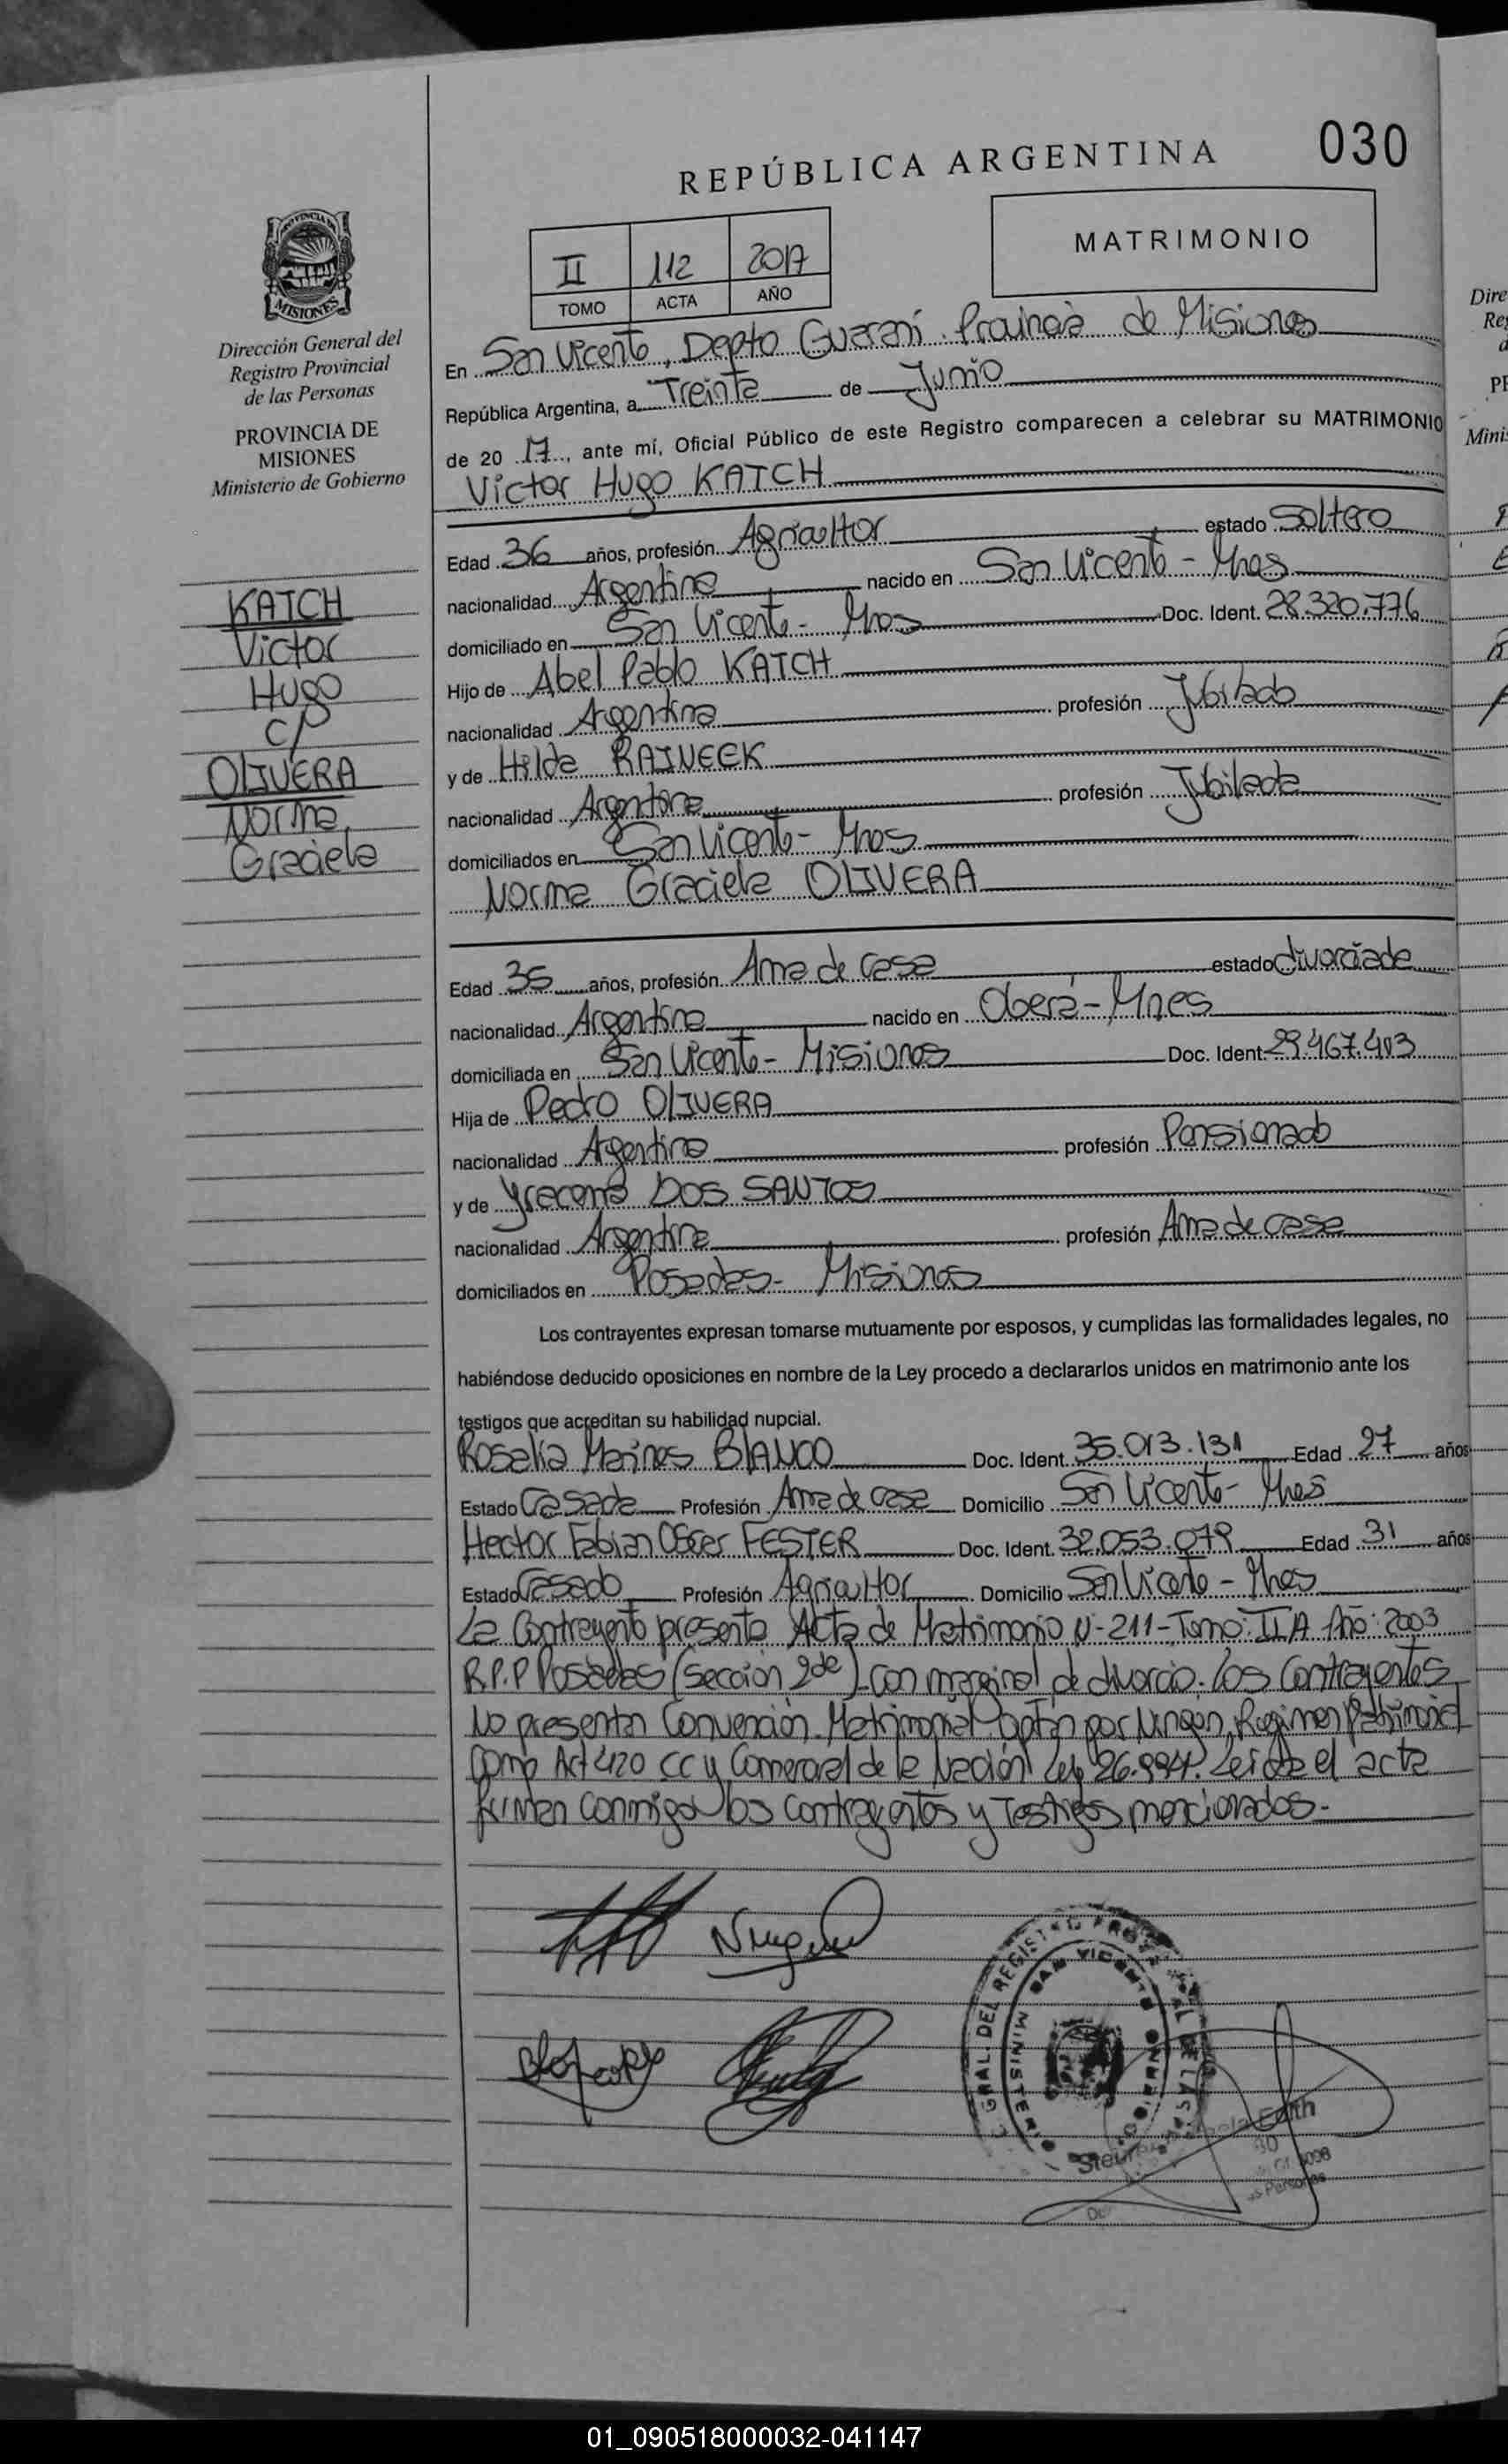 030
REPÚBLICA ARGENTINA
MATRIMONIO
II 112 2017
TOMO ACTA AÑO
PROVINCIA DE
MISIONES
Dirección General del
Registro Provincial
de las Personas
PROVINCIA DE
MISIONES
Ministerio de Gobierno
KATCH
Victor
Hugo
c/
OLIVERA
Norma
Graciela
En San Vicente, Depto Guaraní. Provincia de Misiones
República Argentina, a Treinta de Junio
de 20 17, ante mí, Oficial Público de este Registro comparecen a celebrar su MATRIMONIO
Victor Hugo KATCH
Edad 36 años, profesión Agricultor estado Soltero
nacionalidad Argentina nacido en San Vicente - Mnes
domiciliado en San Vicente - Mnes Doc. Ident. 28.320.776
Hijo de Abel Pablo KATCH
nacionalidad Argentina profesión Jubilado
y de Hilda RAINEEK
nacionalidad Argentina profesión Jubilada
domiciliados en San Vicente - Mnes
Norma Graciela OLIVERA
Edad 35 años, profesión Ama de casa estado divorciada
nacionalidad Argentina nacido en Oberá - Mnes
domiciliada en San Vicente - Misiones Doc. Ident. 29.467.403
Hija de Pedro OLIVERA
nacionalidad Argentina profesión Pensionado
y de Yracema DOS SANTOS
nacionalidad Argentina profesión Ama de casa
domiciliados en Posadas - Misiones
Los contrayentes expresan tomarse mutuamente por esposos, y cumplidas las formalidades legales, no
habiéndose deducido oposiciones en nombre de la Ley procedo a declararlos unidos en matrimonio ante los
testigos que acreditan su habilidad nupcial.
Rosalia Marines BLANCO Doc. Ident. 35.013.131 Edad 27 años
Estado Casada Profesión Ama de casa Domicilio San Vicente - Mnes
Hector Fabian Oscar FESTER Doc. Ident. 32.053.079 Edad 31 años
Estado Casado Profesión Agricultor Domicilio San Vicente - Mnes
La Contrayente presenta Acta de Matrimonio N-211-Tomo: II A Año: 2003
R.P.P Posadas (Sección 2da) con marginal de divorcio. Los Contrayentes
No presentan Convención Matrimonial optan por Ningun Regimen Patrimonial
Como Art 420 CC y Comercial de la Nación Ley 26.994. Leída el acta
firman conmigo los contrayentes y Testigos mencionados.-
GRAL. DEL REGISTRO
SAN VICENTE
Edith
01_090518000032-041147